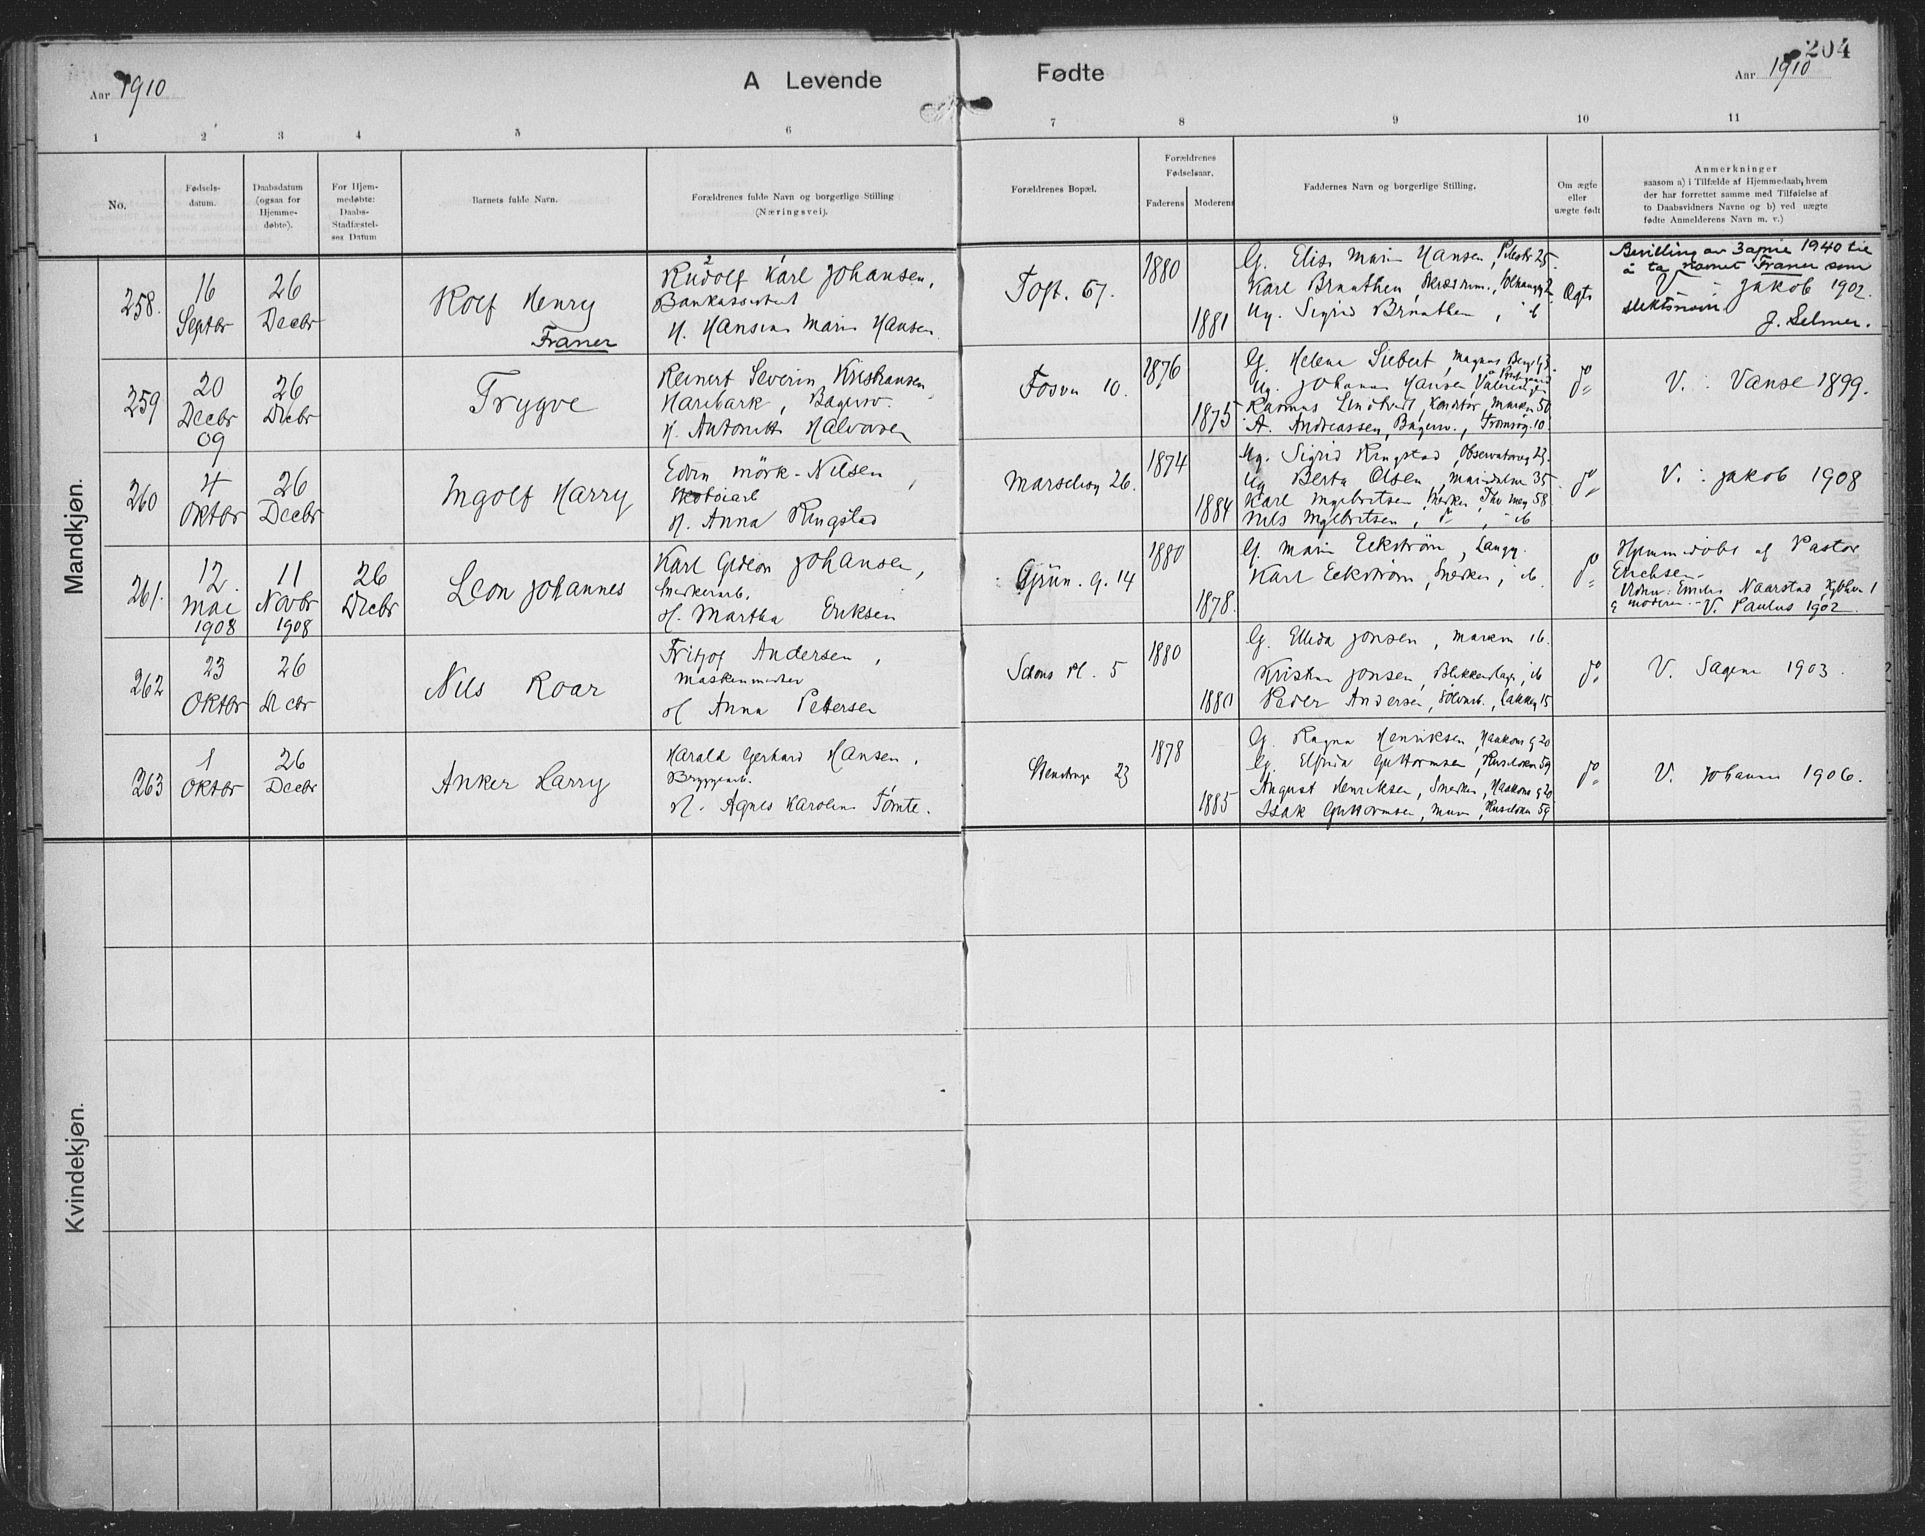 204
Aar 1910
A Levende
Fødte
Aar 1910
1 2 3 4 5 6 7 8 9 10 11
No.
Fødsels-
datum.
Daabsdatum
(ogsaa for
Hjemme-
døbte).
For Hjem-
medøbte:
Daabs-
Stadfæstel-
ses Datum
Barnets fulde Navn.
Forældrenes fulde Navn og borgerlige Stilling
(Næringsvei).
Forældrenes Bopæl.
Forældrenes
Fødselsaar.
Faderens Moderens
Faddernes Navn og borgerlige Stilling.
Om ægte
eller
uægte født
Anmerkninger
saasom a) i Tilfælde af Hjemmedaab, hvem
der har forrettet samme med Tilføielse af
to Daabsvidners Navne og b) ved uægte
fødte Anmelderens Navn m. v.)
Mandkjøn.
258.
16
Septbr
26
Decbr
Rolf Henry
Franer
Rudolf Karl Johansen,
Bankassistent
H. Hansine Marie Hansen
Toft. 67.
1880
1881
G. Elise Marie Hansen, Pilestr 25.
Karl Braathen,
Ug. Sigrid Braathen, ib
Ægte
Bevilling av 3 april 1940 til
å ta navnet Franer som
slektsnavn. Jakob 1902.
J. Selmer.
259
20
Decbr
09
26
Decbr
Trygve
Reinert Severin Kristiansen
Harebark, Bagersv.
H. Antonette Halvorsen
Fosvn 10.
1876
1875
G. Helene Siebert, Magnus Bergs g 3.
Ug. Johanne Hansen,
Rasmus Lindtvedt, Konditor, Marken 50
A. Andreassen, Bagersv., Tromsøg. 10
do
V. : Vanse 1899.
260
4
Oktbr
26
Decbr
Ingolf Harry
Edvin Mörk-Nilsen,
Skotøiarb
H. Anna Ringstad
Marselisg 26.
1874
1884
Ug. Sigrid Ringstad, Observatoreg 23.
Ug Berta Olsen, Maridalsv 35
Karl Ingebritsen, Snekker, Thv Meg 58
Nils Ingebritsen, do, ib
do
V. : Jakob 1908
261.
12
Mai
1908
11
Novbr
1908
26
Decbr
Leon Johannes
Karl Gideon Johansen,
Snekkerarb.
H. Martha Eriksen
Grün. g. 14
1880
1878.
G. Marie Eckstrøm, Langg.
Karl Eckstrøm, Snekker, ib
do
Hjemmedøbt af Pastor
Erichsen.
Vidner: Emilie Naarstad,
g moderen. - V. Paulus 1902.
262
23
Oktbr
26
Decbr
Nils Roar
Fritjof Andersen,
Maskinmester
H Anna Petersen
Schous Pl. 5
1880
1880
G. Elleda Jonsen, Marken 16.
Kristian Jonsen, Blikkenslager, ib
Peder Andersen, Sølvarb., Lakkeg 15
do
V. Sagene 1903.
263
1
Oktbr
26
Decbr
Anker Harry
Harald Gerhard Hansen,
Bryggearb.
H. Agnes Karoline Tømte.
Stensberggt 23
1878
1885
G. Ragna Henriksen, Haakons g 20
G. Elfrida Guttormsen, Huseløkken 59
August Henriksen, Snekker, Haakons g 20
Isak Guttormsen, Murer, Huseløkken 59
do
V. Johannes 1906.
Kvindekjøn.